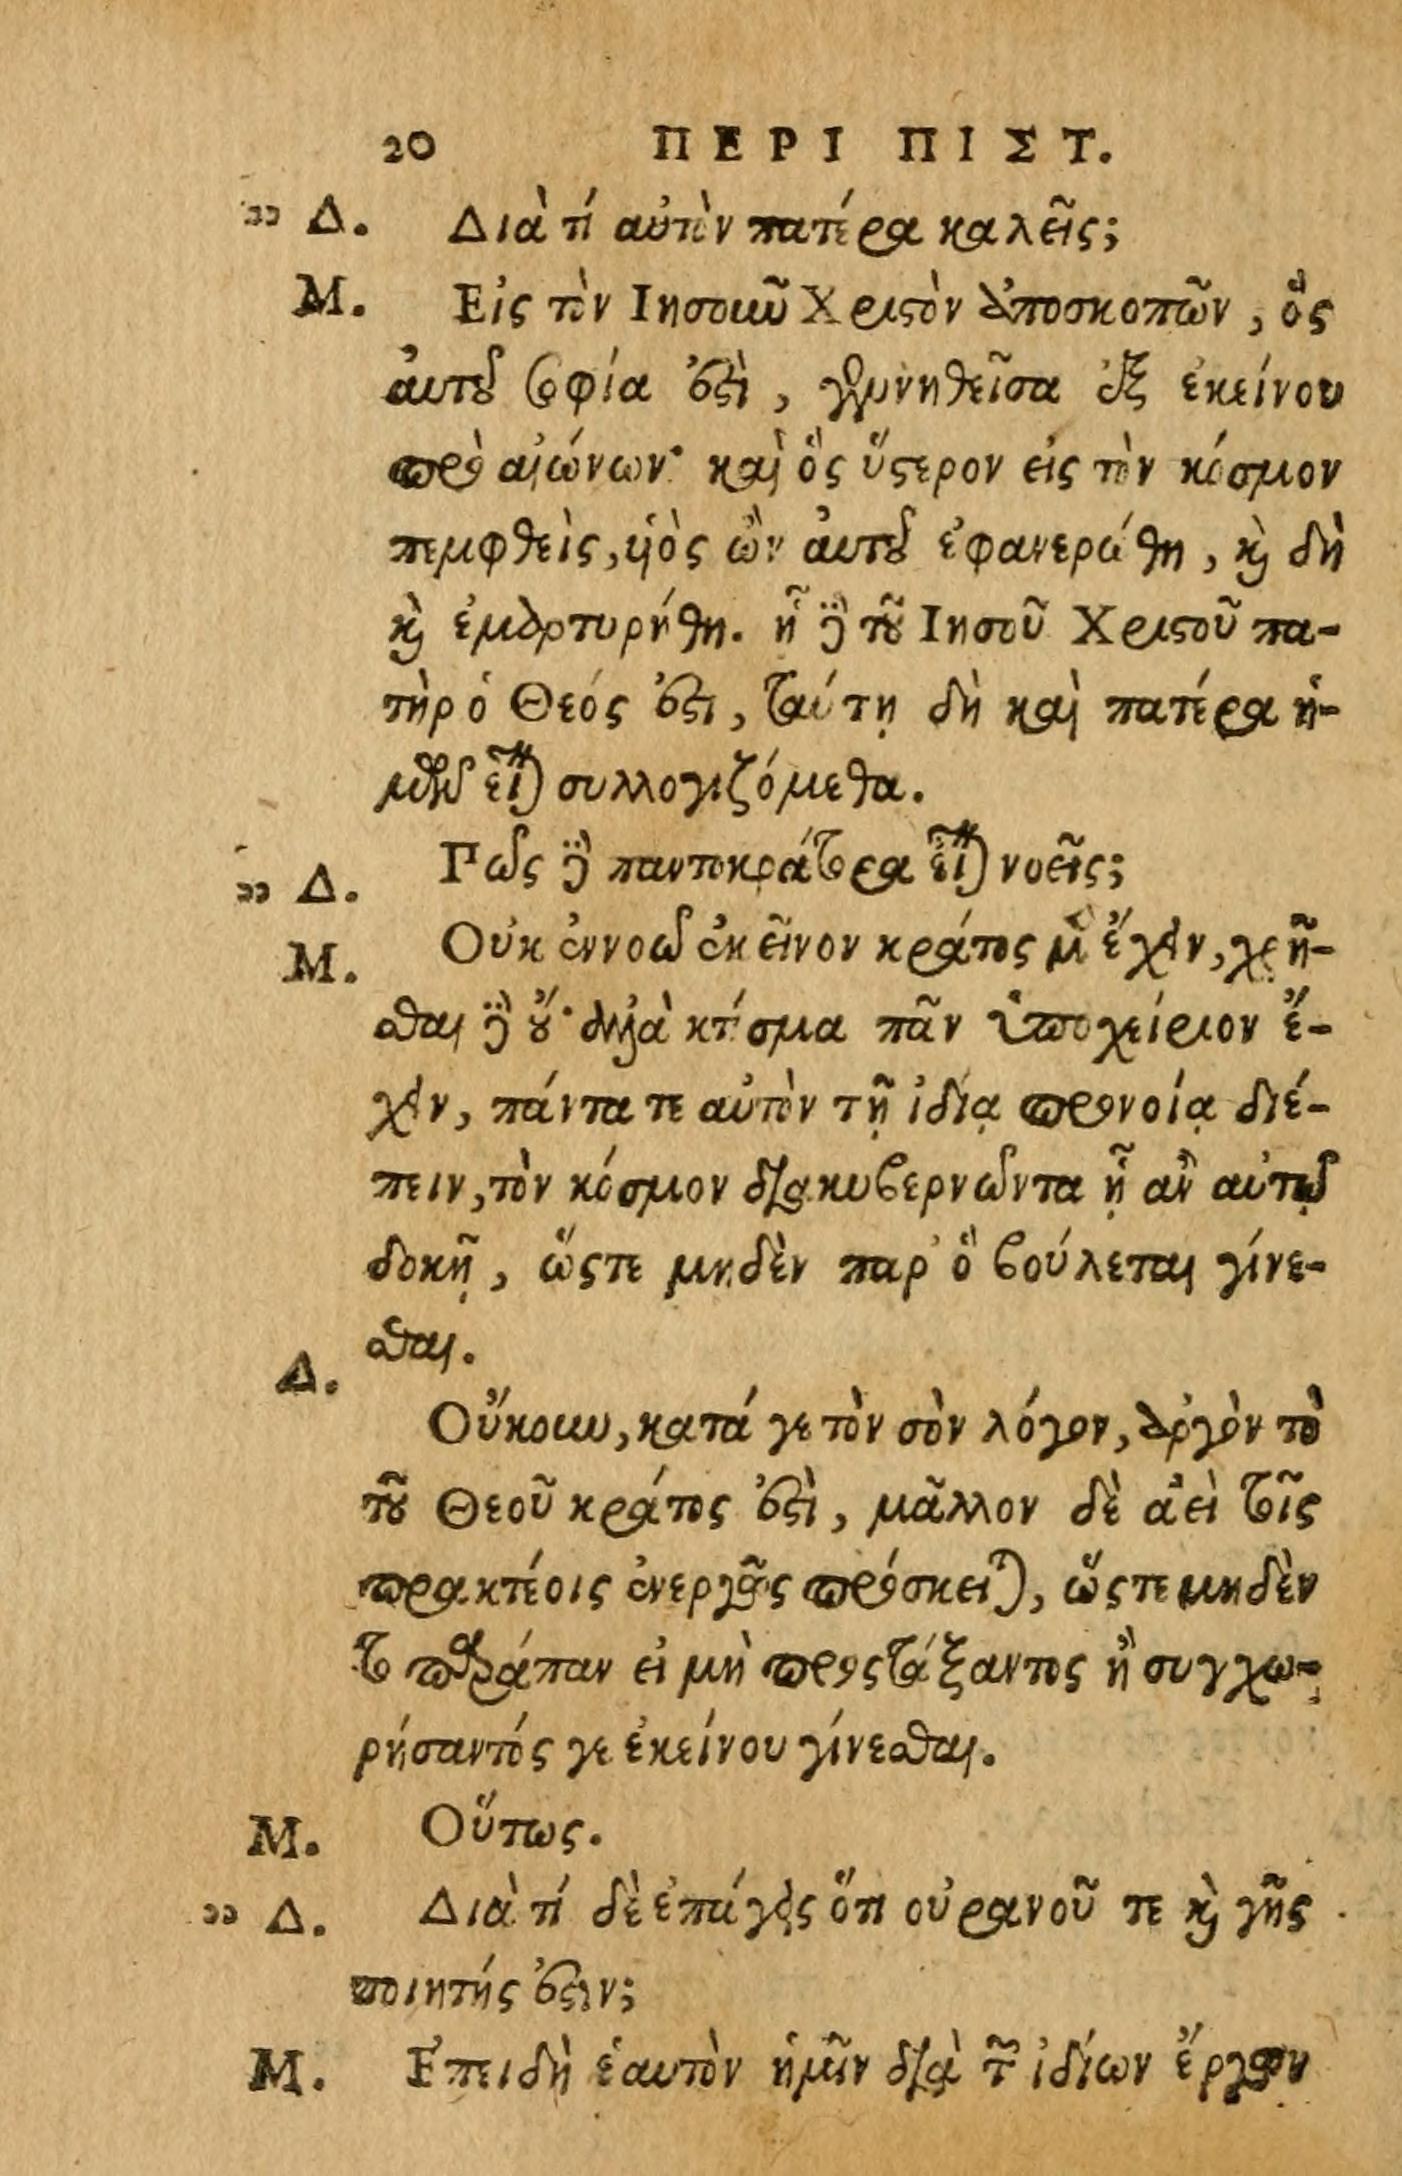 20 ΠΕΡΙ ΠΙΣΤ.
„ Δ. Διὰ τί αὐτὸν πατέρα καλεῖς;
Μ. Εἰς τὸν Ιησοῦν Χριστὸν ἀποσκοπῶν, ὃς
αὐτοῦ σοφία ἐστὶ, γεννηθεῖσα ἐξ ἐκείνου
πρὸ αἰώνων· καὶ ὃς ὕστερον εἰς τὸν κόσμον
πεμφθεὶς, υἱὸς ὢν αὐτοῦ ἐφανερώθη, καὶ δὴ
καὶ ἐμαρτυρήθη. ᾗ δὲ τοῦ Ιησοῦ Χριστοῦ πα-
τὴρ ὁ Θεός ἐστι, ταύτῃ δὴ καὶ πατέρα ἡ-
μῶν εἶναι συλλογιζόμεθα.
„ Δ. Πῶς δὲ παντοκράτορα εἶναι νοεῖς;
Μ. Οὐκ ἐννοῶ ἐκεῖνον κράτος μὲν ἔχειν, χρῆ-
σθαι δὲ οὔ· ἀλλὰ κτίσμα πᾶν ὑποχείριον ἔ-
χειν, πάντα τε αὐτὸν τῇ ἰδίᾳ προνοίᾳ διέ-
πειν, τὸν κόσμον διακυβερνῶντα ᾗ ἂν αὐτῷ
δοκῇ, ὥστε μηδὲν παρ' ὃ βούλεται γίνε-
σθαι.
Δ. Οὔκουν, κατά γε τὸν σὸν λόγον, ἀργὸν τὸ
τοῦ Θεοῦ κράτος ἐστὶ, μᾶλλον δὲ ἀεὶ τοῖς
πρακτέοις ἐνεργῶς πρόσκειται, ὥστε μηδὲν
τὸ παράπαν εἰ μὴ προστάξαντος ἢ συγχω-
ρήσαντός γε ἐκείνου γίνεσθαι.
Μ. Οὕτως.
„ Δ. Διὰ τί δὲ ἐπάγεις ὅτι οὐρανοῦ τε καὶ γῆς
ποιητής ἐστιν;
Μ. Επειδὴ ἑαυτὸν ἡμῖν διὰ τῶν ἰδίων ἔργων